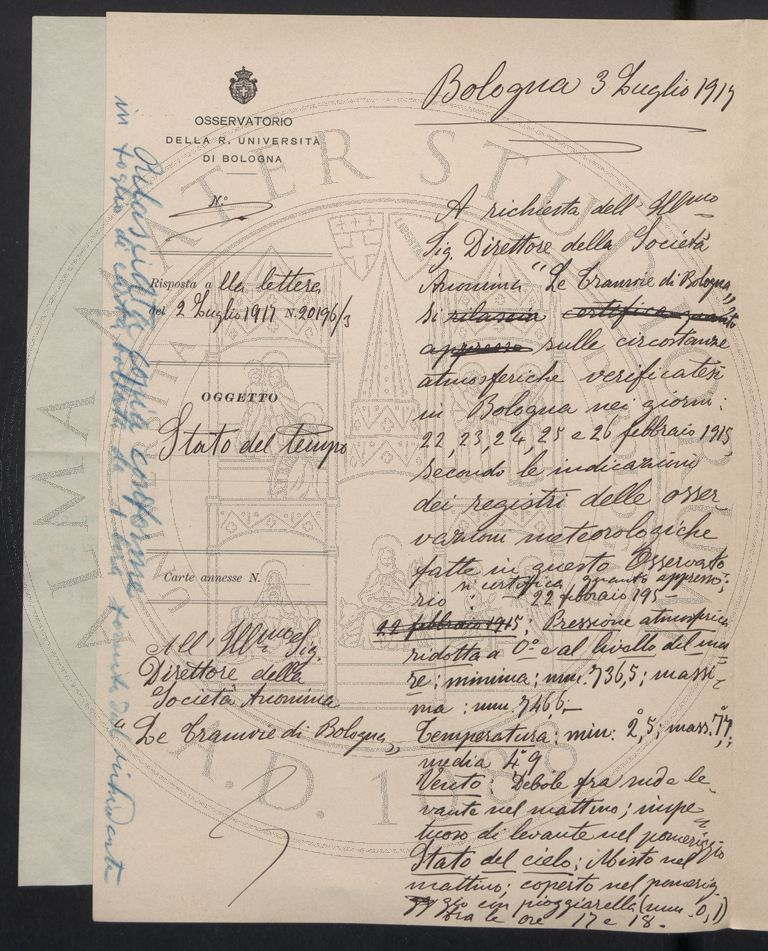 Bologna 3 Luglio 1917
OSSERVATORIO
DELLA R. UNIVERSITÀ
DI BOLOGNA
N.º
Risposta alla lettera
del 2 Luglio 1917 N. 20196/3
OGGETTO
Stato del tempo
Carte annesse N.
All' Ill.mo Sig.
Direttore della
Società Anonima
"Le Tramvie di Bologna"
A richiesta dell Ill.mo
Sig. Direttore della Società
Anonima "Le Tramvie di Bologna"
si rilascia certifica quanto
appresso sulle circostanze
atmosferiche verificatesi
in Bologna nei giorni:
22, 23, 24, 25 e 26 febbraio 1915
secondo le indicazioni
dei registri delle osser
vazioni meteorologiche
fatte in questo Osservato
rio si certifica quanto appresso:
22 febbraio 195
22 febbraio 1915: Pressione atmosferica
ridotta a 0° e al livello del ma
re: minima: mm. 736,5; massi
ma: mm. 746,6;
Temperatura: min: 2°,5; mass. 7°,7;
media 4°9
Vento: Debole fra sud e le
vante nel mattino; impe
tuoso di levante nel pomeriggio
Stato del cielo: Misto nel
mattino; coperto nel pomerig
gio con pioggiarella (mm. 0,1)
tra le ore 17 e 18.
Rilasciata copia conforme
in foglio di carta bollata da 1 lira fornito dal richiedente
ALMA MATER STUDIORUM
A.D. 1088